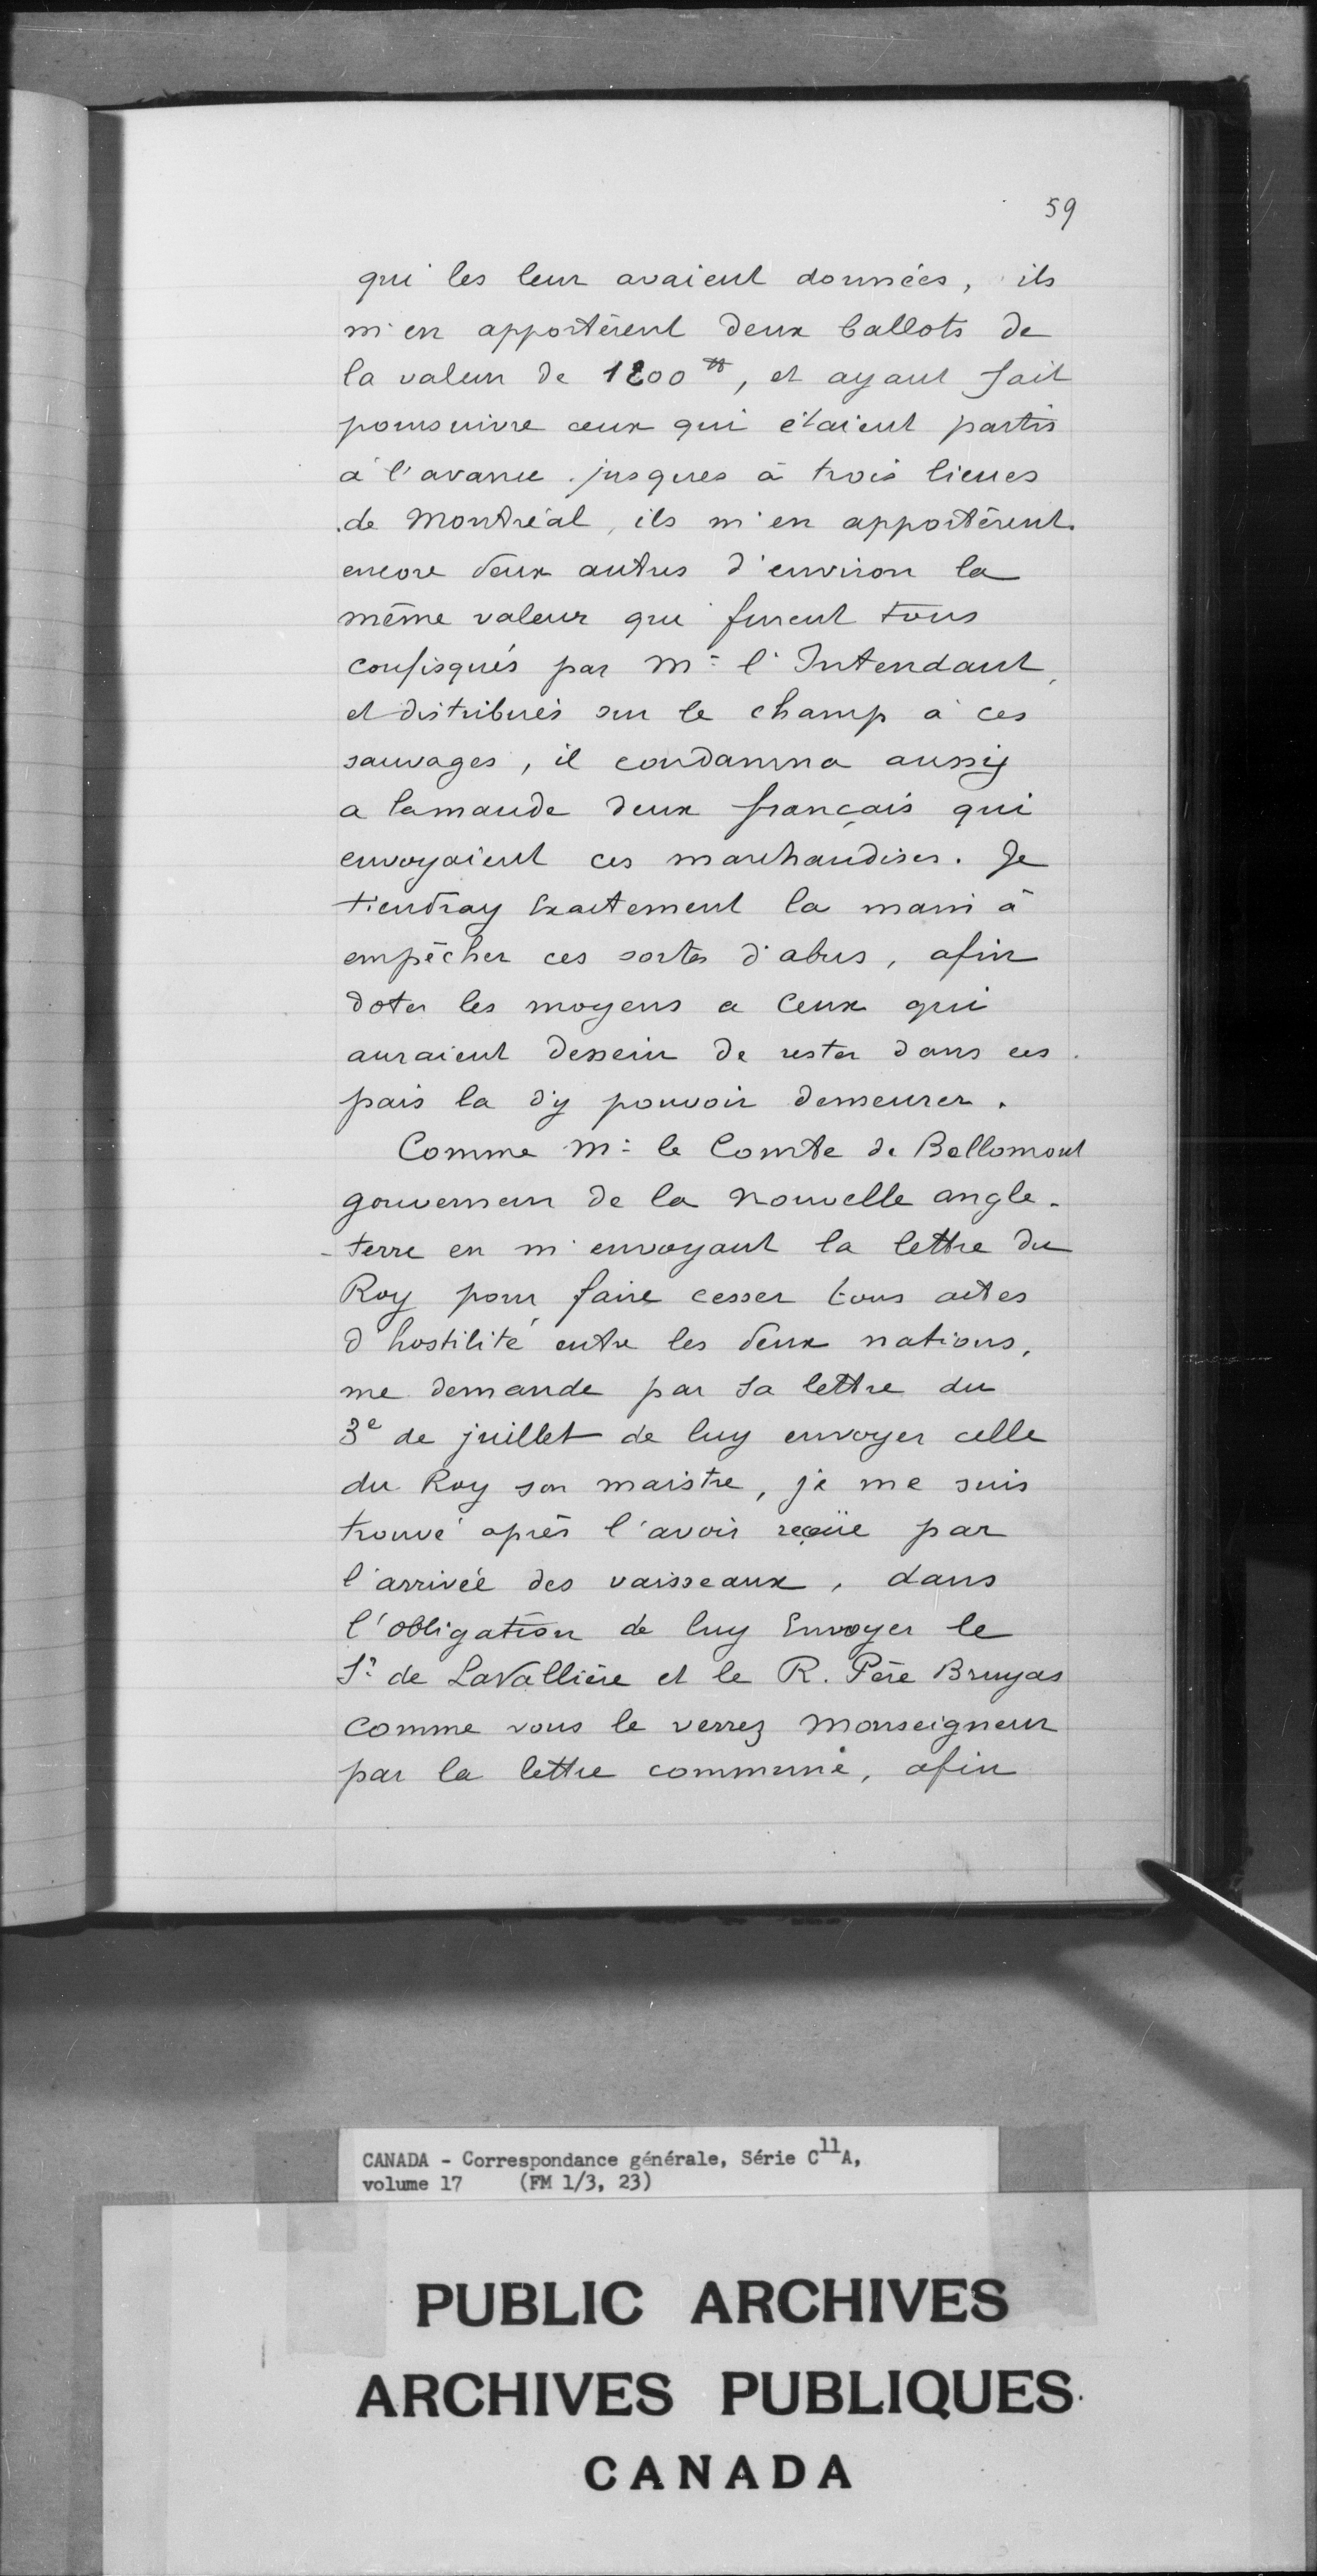 59
qui les leur avaient données, ils
m'en apportèrent deux ballots de
la valeur de 1200 ₶, et ayant fait
poursuivre ceux qui étaient partis
à l'avance jusques à trois lieues
de Montréal, ils m'en apportèrent
encore deux autres d'environ la
même valeur qui furent tous
confisqués par Mr l'Intendant,
et distribués sur le champ à ces
sauvages, il condamna aussy
a lamande deux français qui
envoyaient ces marchandises. Je
tiendray Exactement la main à
empêcher ces sortes d'abus, afin
doter les moyens a Ceux qui
auraient dessein de rester dans ces
pais la d'y pouvoir demeurer.
Comme Mr le Comte de Bellomont
gouverneur de la nouvelle angle-
-terre en m'envoyant la lettre du
Roy pour faire cesser tous actes
d'hostilité entre les deux nations,
me demande par sa lettre du
3e de juillet de luy envoyer celle
du Roy son maistre, je me suis
trouvé après l'avoir reçüe par
l'arrivée des vaisseaux, dans
l'obligation de luy Envoyer le
Sr de LaVallière et le R. Père Bruyas
comme vous le verrez Monseigneur
par la lettre commune, afin
CANADA - Correspondance générale, Série C11A,
volume 17 (FM 1/3, 23)
PUBLIC ARCHIVES
ARCHIVES PUBLIQUES
CANADA